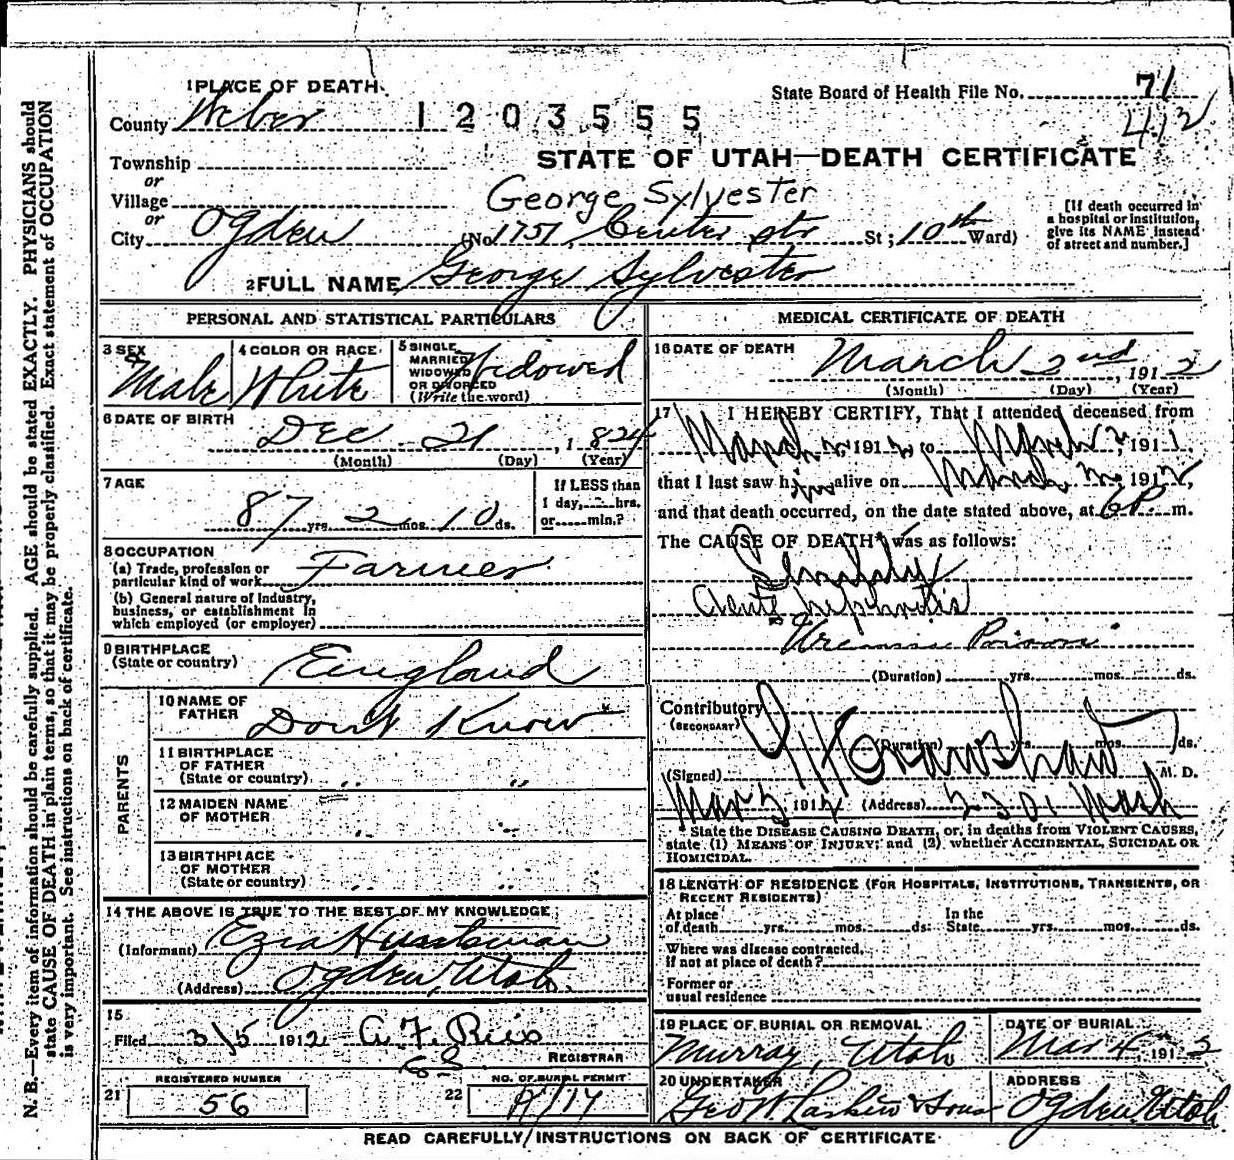 1 PLACE OF DEATH
State Board of Health File No. 71
412
County Weber 1203555
Township
STATE OF UTAH—DEATH CERTIFICATE
or
Village
George Sylvester
or
City Ogden (No 1751 Center str St; 10th Ward)
[If death occurred in
a hospital or institution,
give its NAME instead
of street and number.]
2 FULL NAME George Sylvester
PERSONAL AND STATISTICAL PARTICULARS
3 SEX Male
4 COLOR OR RACE White
5 SINGLE
MARRIED
WIDOWED
OR DIVORCED
(Write the word)
Widowed
6 DATE OF BIRTH Dec 21, 1824
(Month) (Day) (Year)
7 AGE
87 yrs. 2 mos. 10 ds.
If LESS than
1 day, hrs.
or min.?
8 OCCUPATION
(a) Trade, profession or
particular kind of work Farmer
(b) General nature of industry,
business, or establishment in
which employed (or employer)
9 BIRTHPLACE
(State or country) England
PARENTS
10 NAME OF
FATHER Dont Know
11 BIRTHPLACE
OF FATHER
(State or country) " "
12 MAIDEN NAME
OF MOTHER " "
13 BIRTHPLACE
OF MOTHER
(State or country) " "
14 THE ABOVE IS TRUE TO THE BEST OF MY KNOWLEDGE
(Informant) Ezra
(Address) Ogden, Utah.
15
Filed 3/5 1912
REGISTRAR
21 REGISTERED NUMBER
56
22 NO. OF BURIAL PERMIT
MEDICAL CERTIFICATE OF DEATH
16 DATE OF DEATH March 2nd, 1912
(Month) (Day) (Year)
17 I HEREBY CERTIFY, That I attended deceased from
March 2, 1912 to March 2, 191
that I last saw him alive on March 2, 1912,
and that death occurred, on the date stated above, at 6 P. m.
The CAUSE OF DEATH was as follows:
Acute nephritis
Poison
(Duration) yrs. mos. ds.
Contributory
(SECONDARY)
(Duration) yrs. mos. ds.
(Signed) M. D.
Mar 3, 1912 (Address) 2301 Wash
State the DISEASE CAUSING DEATH, or, in deaths from VIOLENT CAUSES,
state (1) MEANS OF INJURY; and (2) whether ACCIDENTAL, SUICIDAL OR
HOMICIDAL.
18 LENGTH OF RESIDENCE (FOR HOSPITALS, INSTITUTIONS, TRANSIENTS, OR
RECENT RESIDENTS)
At place
of death yrs. mos. ds.
In the
State yrs. mos. ds.
Where was disease contracted,
if not at place of death?
Former or
usual residence
19 PLACE OF BURIAL OR REMOVAL
Murray, Utah
DATE OF BURIAL
Mar 4, 1912
20 UNDERTAKER
Geo W Larkin & Sons
ADDRESS
Ogden Utah
READ CAREFULLY INSTRUCTIONS ON BACK OF CERTIFICATE
N. B.—Every item of information should be carefully supplied. AGE should be stated EXACTLY. PHYSICIANS should
state CAUSE OF DEATH in plain terms, so that it may be properly classified. Exact statement of OCCUPATION
is very important. See instructions on back of certificate.